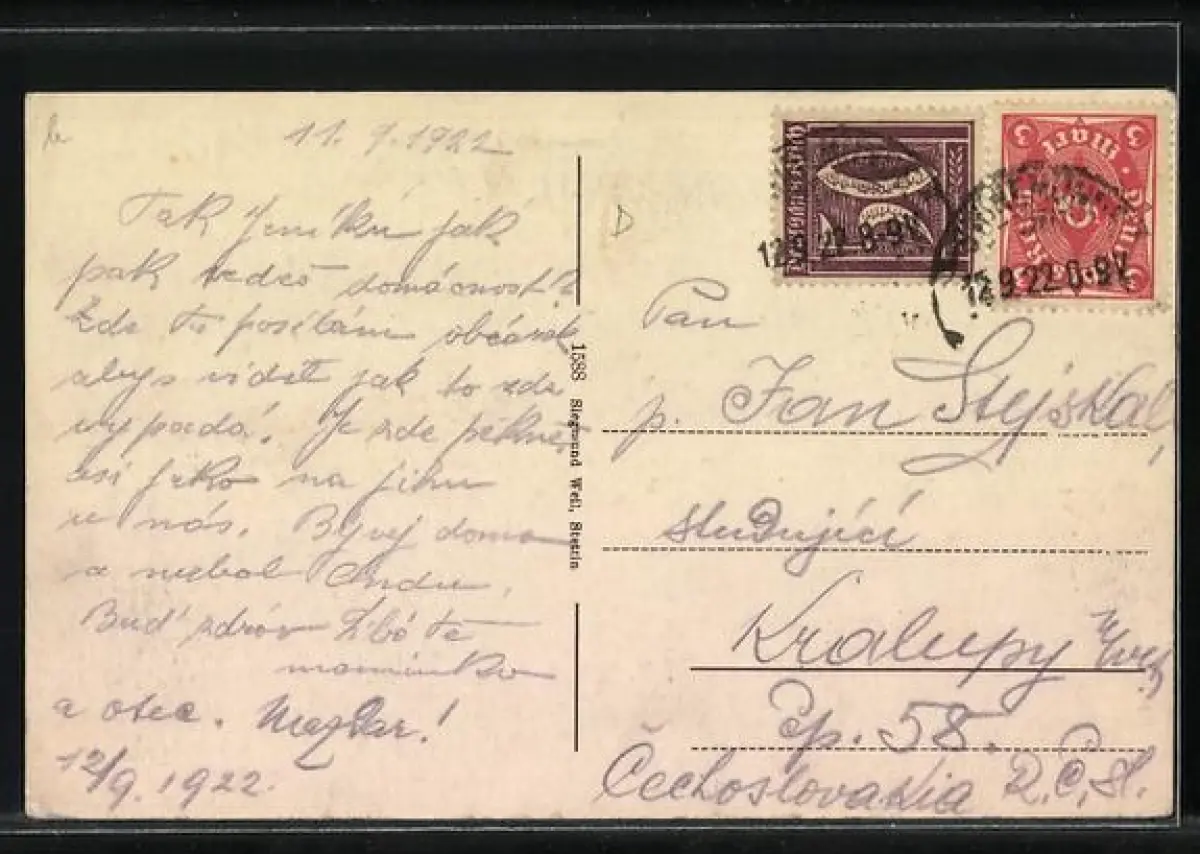 11. 9. 1922
Tak Jeníku jak
pak vedeš domácnost?
Zde Ti posílám obrázek
abys viděl jak to zde
vypadá. Je zde pěkně,
asi jako na jihu
u nás. Bývej doma
a nezlob
Buď zdráv Líbá Tě
maminka
a otec. Nazdar!
12/9. 1922.
1588 Siegmund Weil, Stettin
D
Pan
p. Jan Stýskal,
studující
Kralupy n/Vlt.
čp. 58.
Čechoslovakia R.Č.Sl.
3 Mark 3
Deutsches Reich
12.9.22 8-9V